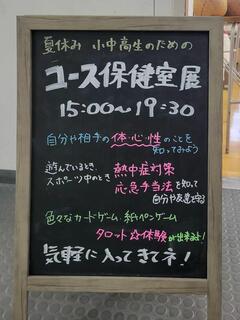 夏休み 小中高生のための
ユース保健室展
15:00〜19:30
自分や相手の体・心・性のことを
知ってみよう
遊んでいるとき、
スポーツ中のとき
熱中症対策
応急手当法を知って
自分や友達を守る
色々なカードゲーム・紙ペンゲーム
タロット占体験が出来るよ!
気軽に入ってきてネ!